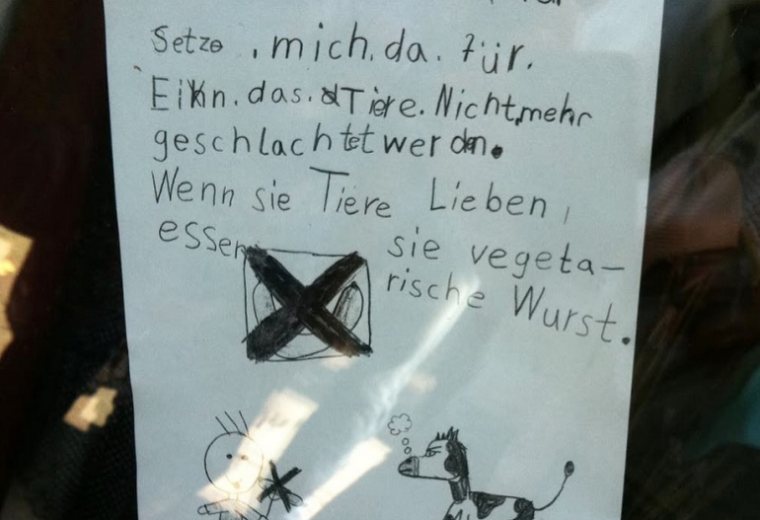 Setze . mich. da. für.
Ein. das. Tiere. Nicht, mehr
geschlachtet werdn.
Wenn sie Tiere Lieben,
essen sie vegeta-
rische Wurst.